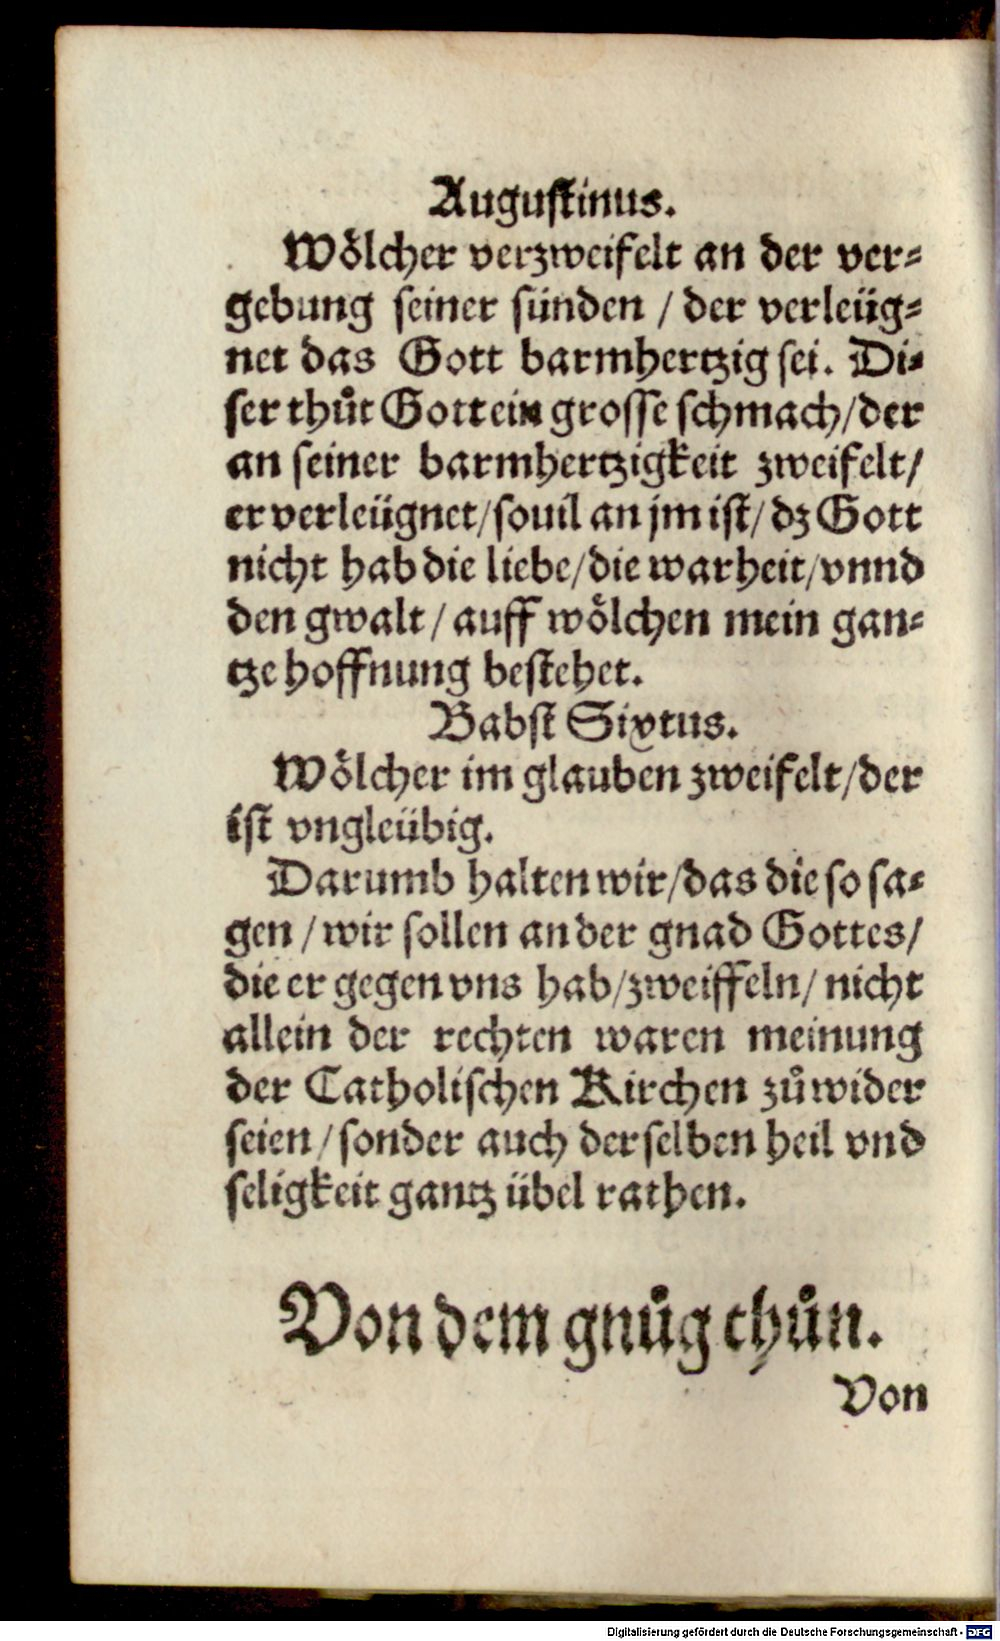 Augustinus.
Woͤlcher verzweifelt an der ver⸗
gebung seiner sünden / der verleüg⸗
net das Gott barmhertzig sei. Di⸗
ser thuͦt Gott ein grosse schmach/der
an seiner barmhertzigkeit zweifelt/
er verleügnet/souil an jm ist/dz Gott
nicht hab die liebe/die warheit/vnnd
den gwalt / auff woͤlchen mein gan⸗
tze hoffnung bestehet.
Babst Sixtus.
Woͤlcher im glauben zweifelt/der
ist vngleübig.
Darumb halten wir/das die so sa⸗
gen / wir sollen an der gnad Gottes/
die er gegen vns hab/zweiffeln/ nicht
allein der rechten waren meinung
der Catholischen Kirchen zuͦwider
seien / sonder auch derselben heil vnd
seligkeit gantz übel rathen.
Von dem gnuͦg thuͦn.
Von
Digitalisierung gefördert durch die Deutsche Forschungsgemeinschaft - DFG